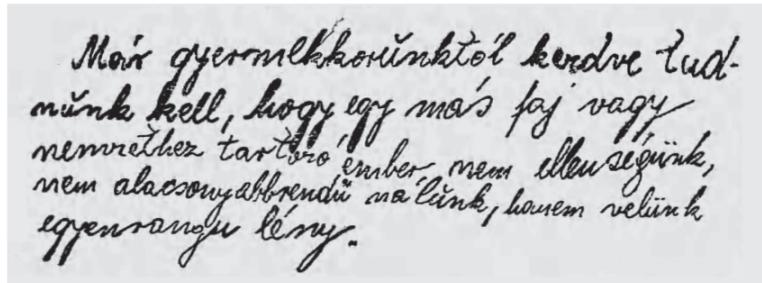 Már gyermekkorunktól kezdve tud-
nunk kell, hogy egy más faj vagy
nemzethez tartozó ember nem ellenségünk,
nem alacsonyabbrendű nálunk, hanem velünk
egyenrangu lény.